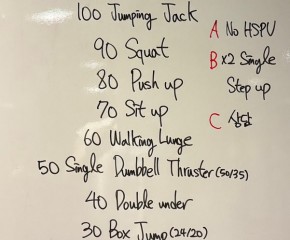 100 Jumping Jack
90 Squat
80 Push up
70 Sit up
60 Walking Lunge
50 Single Dumbbell Thruster (50/35)
40 Double under
30 Box Jump (24/20)
A No HSPU
B x2 Single
Step up
C 상담